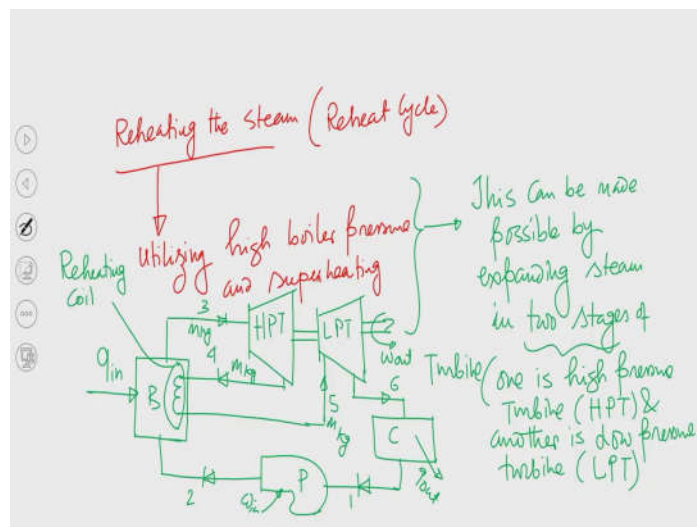 Reheating the steam (Reheat Cycle)
Utilizing high boiler pressure
and superheating
This can be made
possible by
expanding steam
in two stages of
Turbine (one is high pressure
Turbine (HPT) &
another is low pressure
turbine (LPT)
Reheating
coil
3
m kg
HPT
LPT
Wout
4
m kg
qin
B
5
m kg
6
C
qout
P
Win
2
1